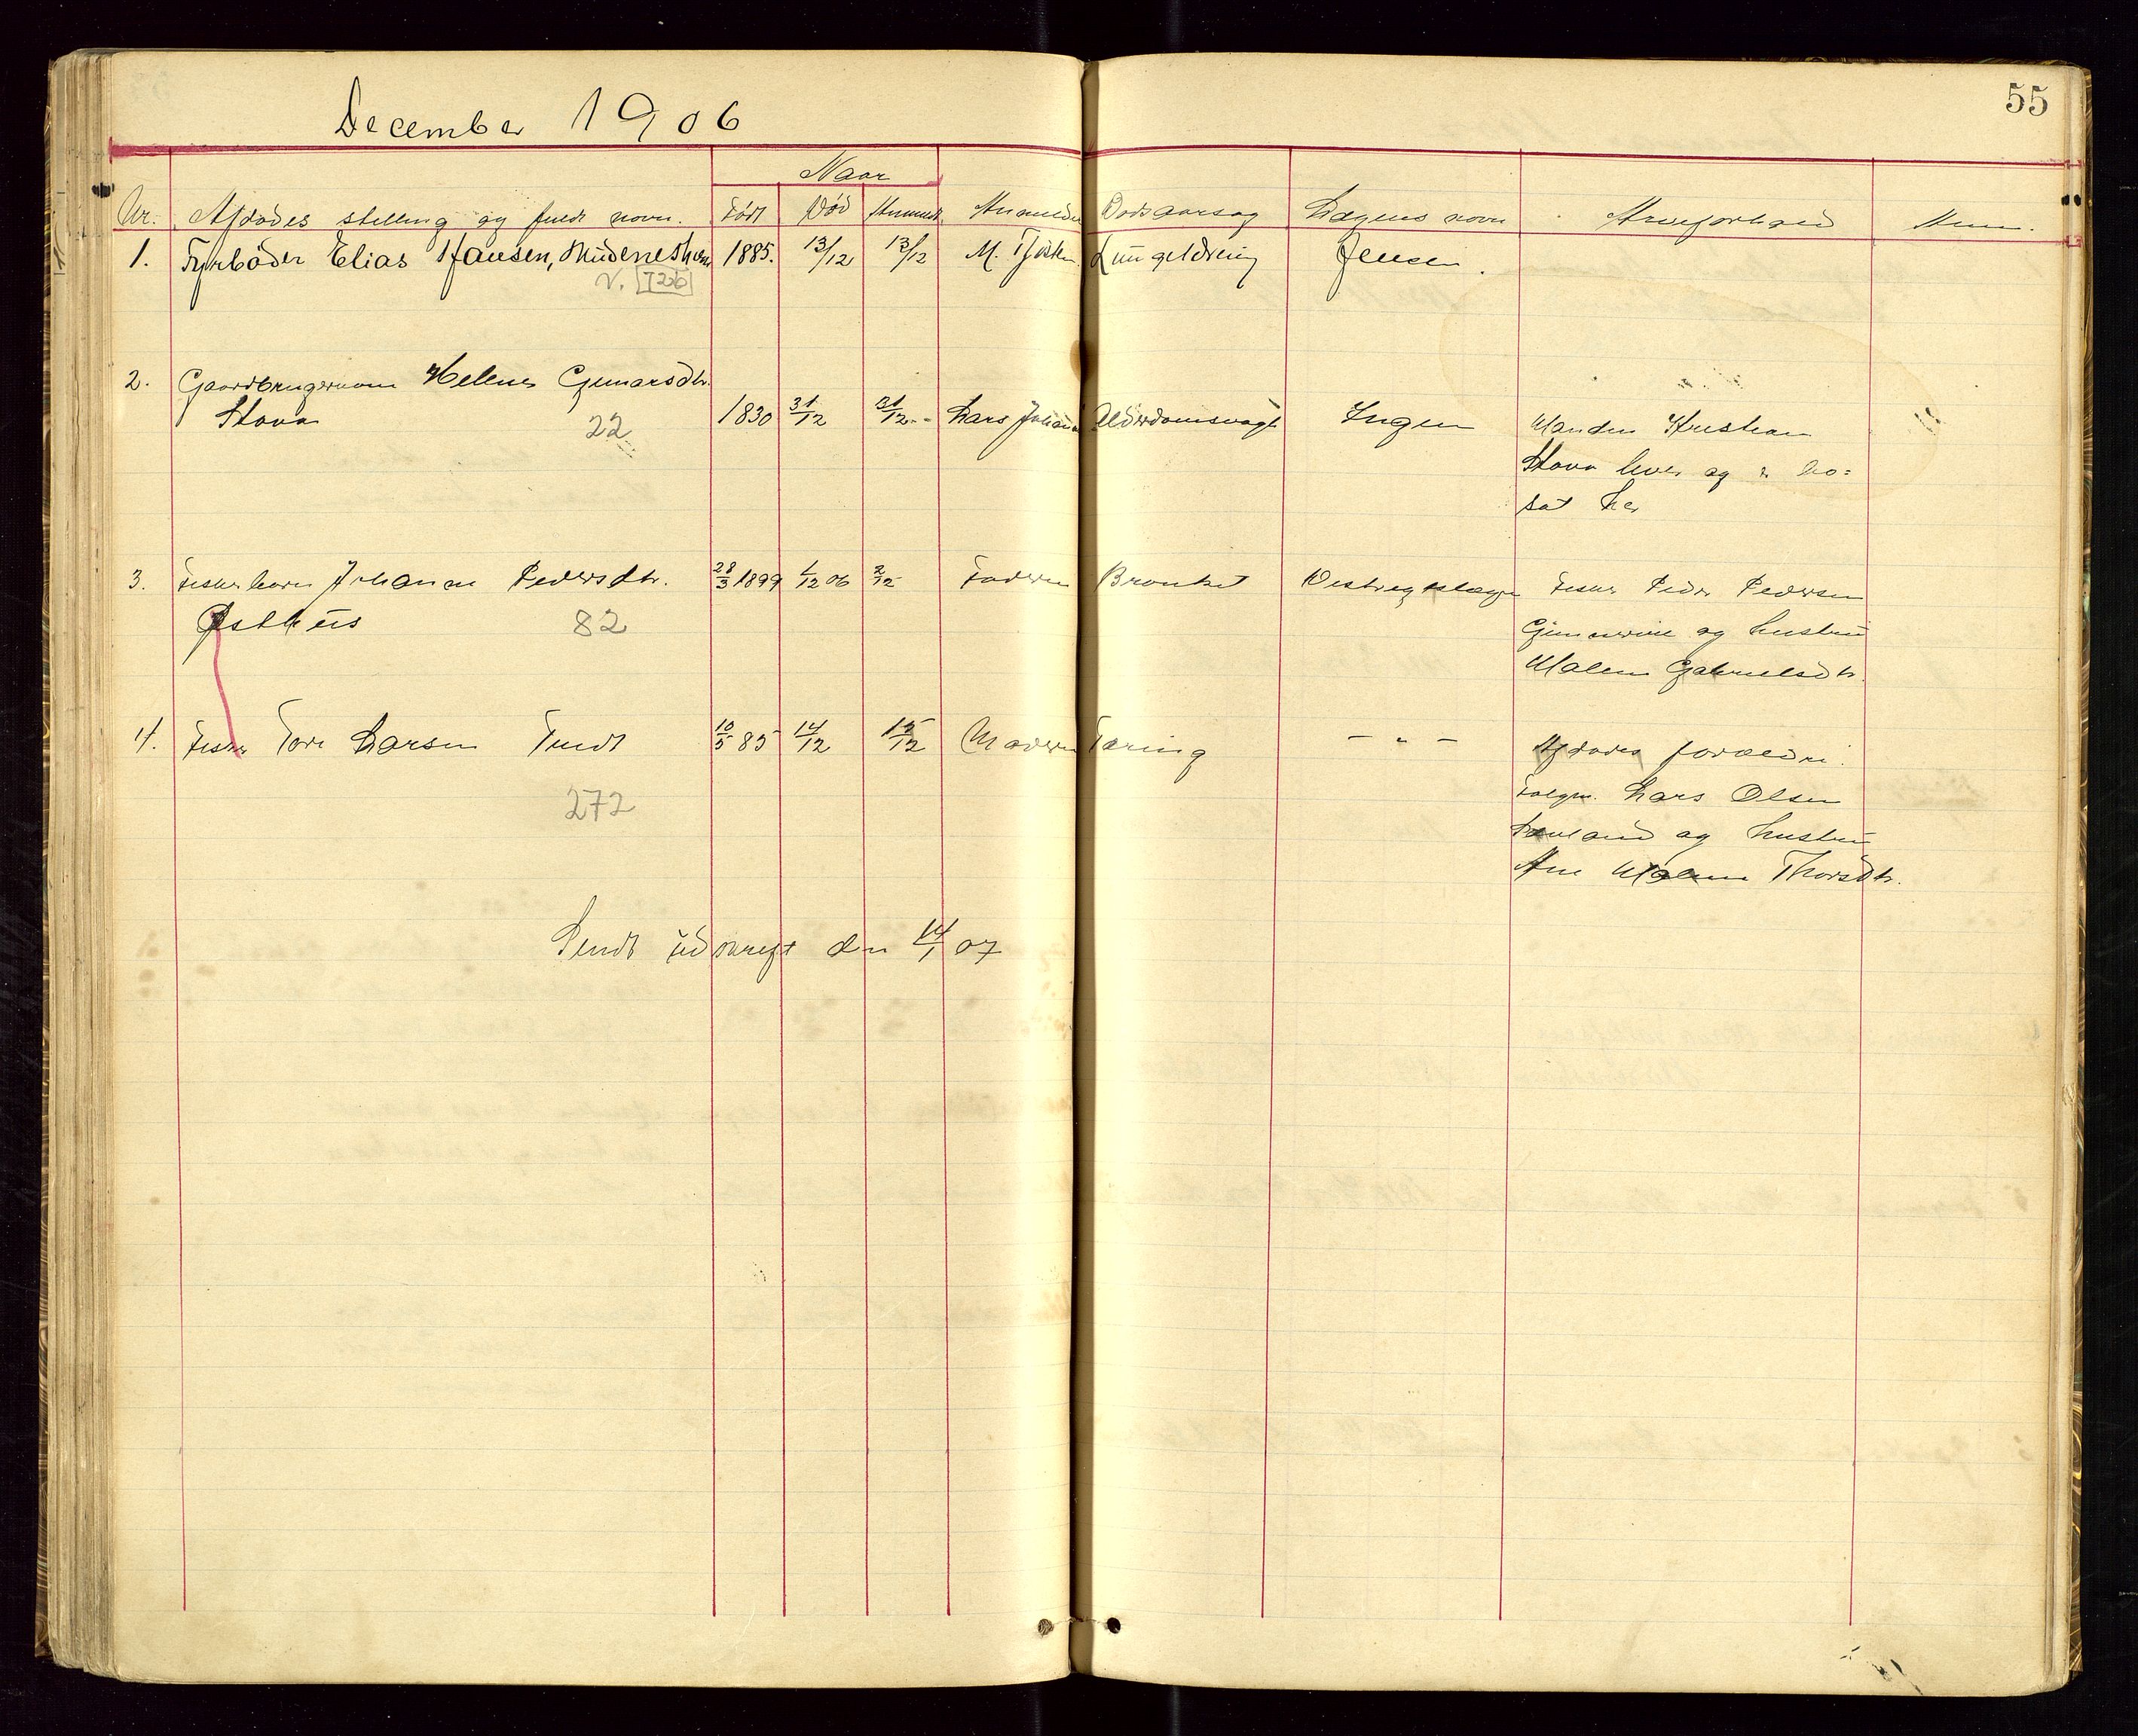 55
December 1906
Naar
Nr. Afdødes stilling og fulde navn. Født Død Anmeldt Anmelder Dødsaarsag Lægens navn Arveforhold Anm.
1. Fyrbøder Elias Hansen, 1885. 13/12 13/12 M. Lungetdring Jensen.
V. 726
2. Gaardbrugerkone Helene Gunarsdtr.
Stava 22 1830 31/12 31/12 Lars Johan Alderdomsvagh Ingen Manden Kristian
Stava lever og er bo=
sat her
3. Fisker barn Johanne Pedersdtr. 28/3 1899 1/12 06 2/12 Faderen Bronkit Distriktslægen Fisker Peder Pedersen
Østhus 82 og hustru
Malene Gabrielsdtr.
4. Fisker Tore Larsen Tuedt 10/5 85 14/12 15/12 Moderen Tæring - " - Afdødes forældre.
272 Lars Olsen
og hustru
Ane Malene Thorsdtr.
Sendt udskrift den 14/1 07